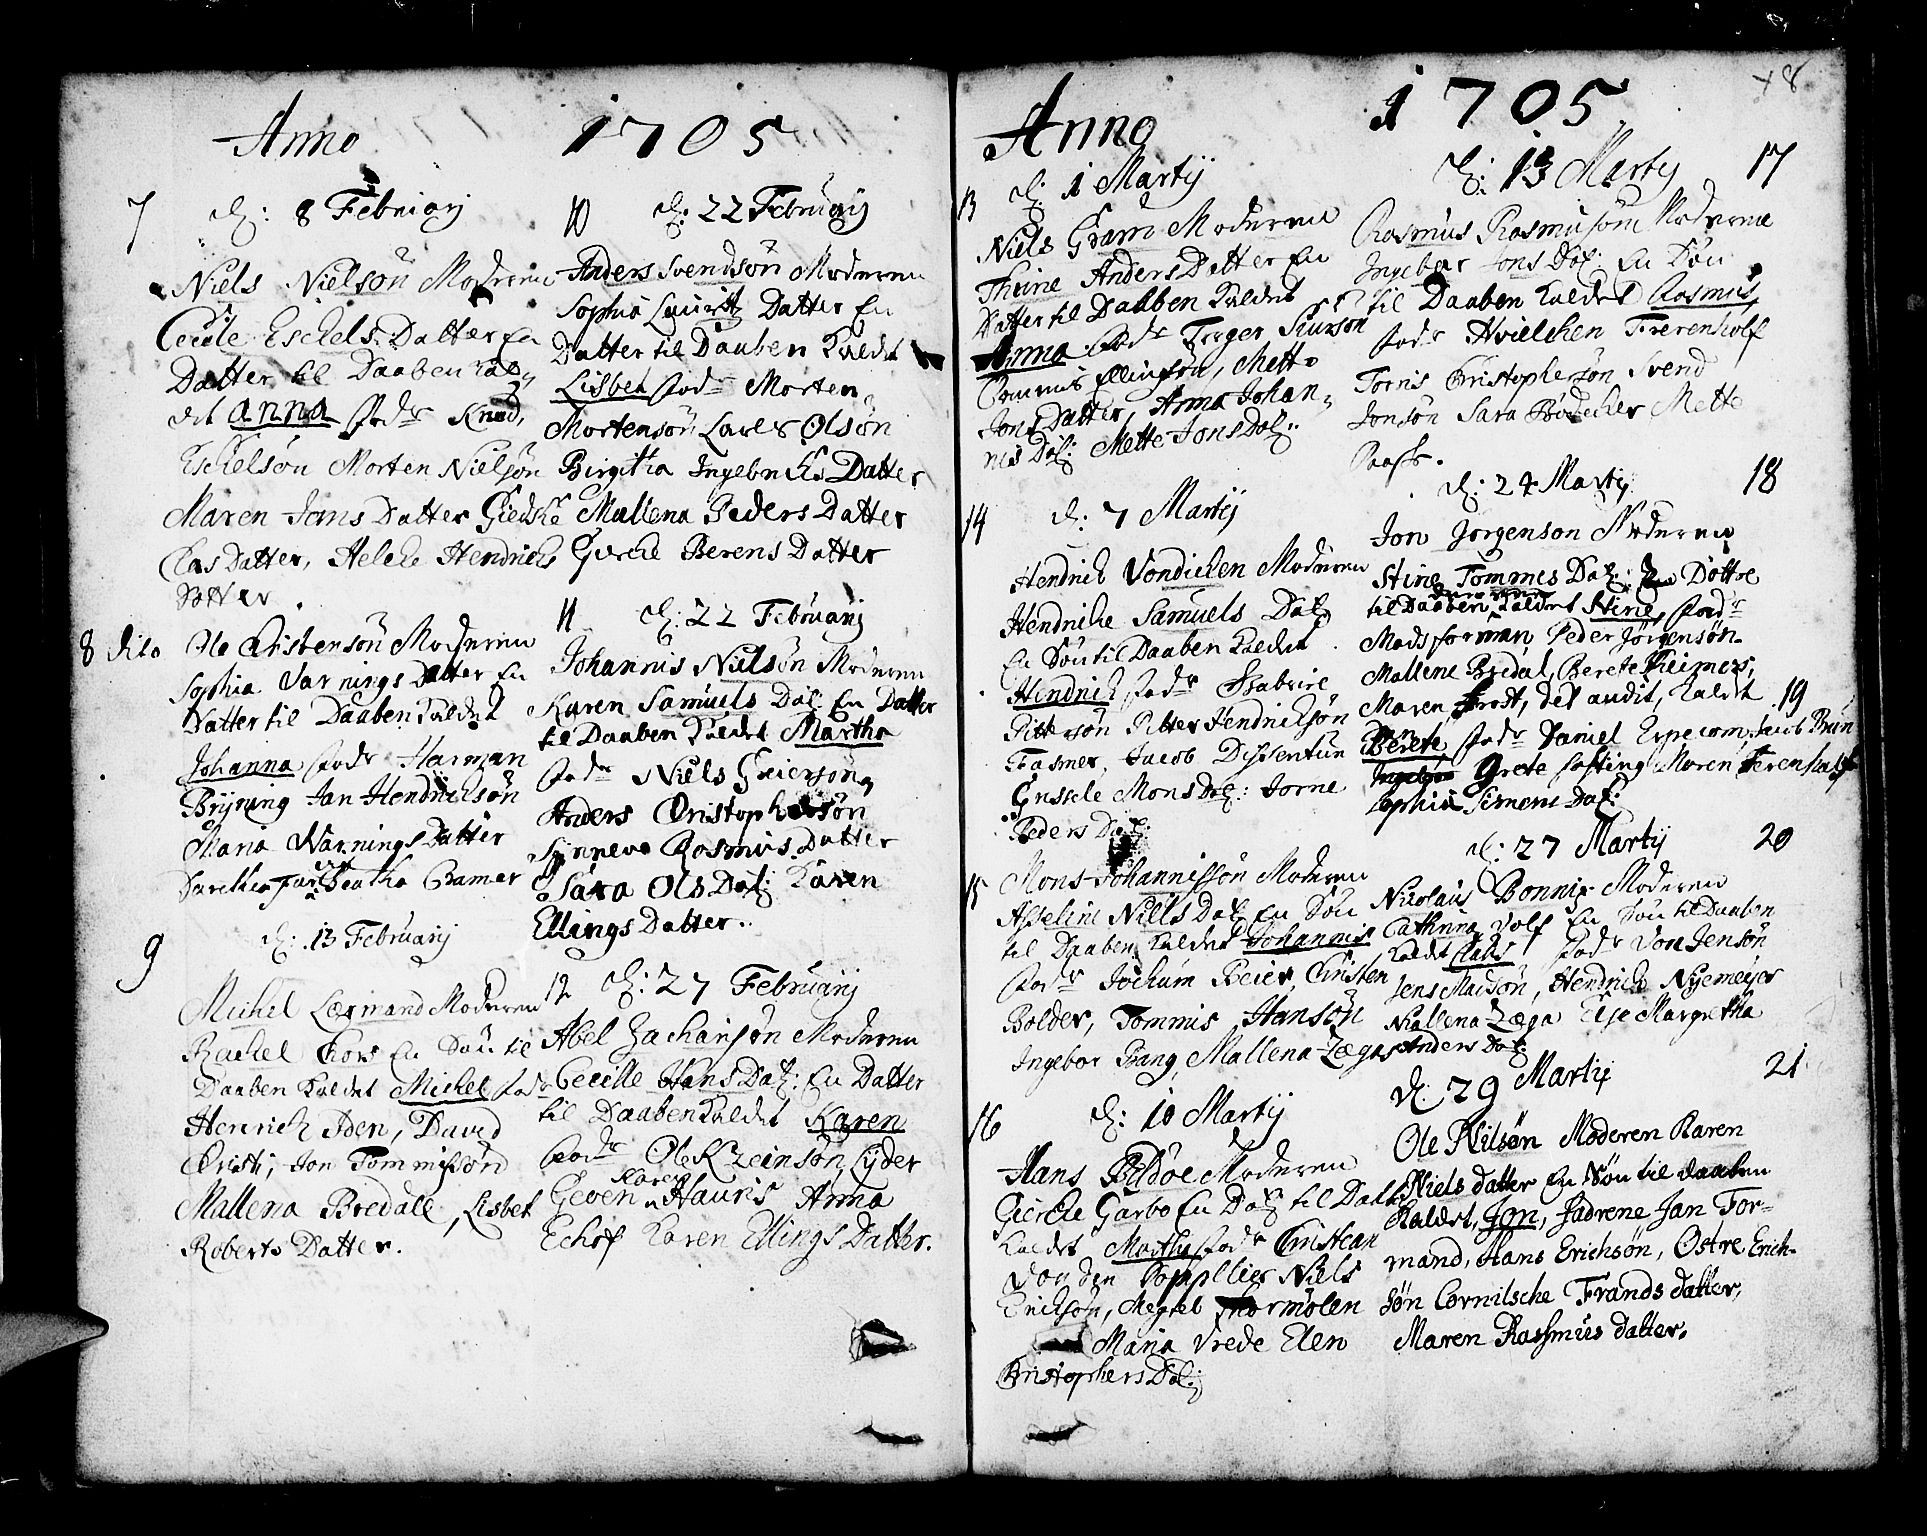 Anno 1705
7 d: 8 Februarij
Niels Nielsön Moderen
Cecile Eschels Datter En
Datter til Daaben kal-
det Anna fadr Knud
Eschelsön Morten Nielsön
Maren Jens Datter Giedske
Clas Datter, Helche Hendrichs
Datter.
8 dito Ole Cristensön Moderen
Sophia Warnings Datter En
Datter til Daaben kaldet
Johanna fadr Harman
Brijning Jan Hendrichsön
Maria Warnings Datter
Beatha Cramer
9 d: 13 Februarij
Michel Moderen
Rachel En Sön til
Daaben kaldet Michel fadr
Henrich Iden, David
Cristi, Jon Tommissön
Mallena Bredall, Lisbet
Roberts Datter.
10 d: 22 Februarij
Anders Svendsön Moderen
Sophia Lauritz Datter En
Datter til Daaben kaldet
Lisbet fadr Morten
Mortensön, Lars Olsön
Birgitha Ingebricks Datter
Mallena Peders Datter
Gierche Berens Datter
11 d: 22 Februarij
Johannis Nielsön Moderen
Karen Samuels Dat: En Datter
til Daaben kaldet Martha
fadr Niels Geiersön,
Anders Cristophersön
Synneve Rasmus Datter
Sara Ols Dat: Karen
Ellings Datter.
12 d: 27 Februarij
Abel Zacharisön Moderen
Cecille Hans Dat: En Datter
til Daaben kaldet Karen
fadr Ole Lyder
Geven Karen Hauris Anna
Echof Karen Ellings Datter.
Anno 1705 48
13 d: 1 Martij
Niels Gram Moderen
Thrine Anders Datter En
Datter til Daaben kaldet
Anna fadr Siursön
Tommis Ellingsön, Mette
Jons Datter, Anna Johan-
nis Dat: Mette Jons Dat:
14 d: 7 Martij
Hendrich Vondichen Moderen
Hendriche Samuels Dat:
En Sön til Daaben kaldet
Hendrich fadr
Pittersön Pitter Hendrichsön
Trasmer, Jacob
Mons Dat: Jorne
Peders Dat:
15 Mons Johannissön Moderen
Asseline Niels Dat: En Sön
til Daaben kaldet Johannis
fadr Jochum Beier, Cristen
Bolder, Tommis Hansön
Ingebor Bang, Mallena Zegas
16 d: 10 Martij
Hans Bildöe Moderen
Gierche Garbo En Dat: til Daab
kaldet Martha fadr Christian
von den Niels
Erichsön, Megtel Thormölen
Maria Vrede Elen
Christophers Dat:
d: 13 Martij 17
Rasmus Rasmusön Moderene
Ingebor Jons Dat: En Sön
til Daaben kaldet Rasmus,
fadr Hvielchen Frerenholf
Tornis Christophersön Svend
Jonsön Sara Bödecher Mette
Paasch.
d: 24 Martij 18
Jon Jörgensön Moderen
Stine Tommes Dat: 2 Döttre
til Daaben kaldet Stine, fadr
Mads forman, Peder Jörgensön
Mallene Bredal, Berete Reimers,
Maren Trodt, det andit, kaldt 19
Berete fadr Daniel Erpecom, Jacob Brun
Grete softing Maren Ferenhalf
Sophia Simens Dat:
d: 27 Martij 20
Nicolaus Bonnix Moderen
Cathrina Volf En Sön til Daaben
kaldet Claus fadr Von Jensön
Jens Madsön, Hendrich Nyemeyer
Mallena Zega Margretha
Anders Dat:
d: 29 Martij 21
Ole Nilsön Moderen Karen
Niels datter En Sön til daaben
kaldet, Jon, fadrene Jan For-
mand, Hans Erichsön, Ostre Erich-
sön Cornilsche Frands datter,
Maren Rassmus datter.